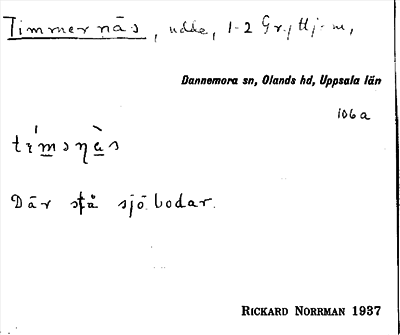 Timmernäs, udde, 1-2 Gr.,
Dannemora sn, Olands hd, Uppsala län
106a
Där stå sjöbodar.
RICKARD NORRMAN 1937